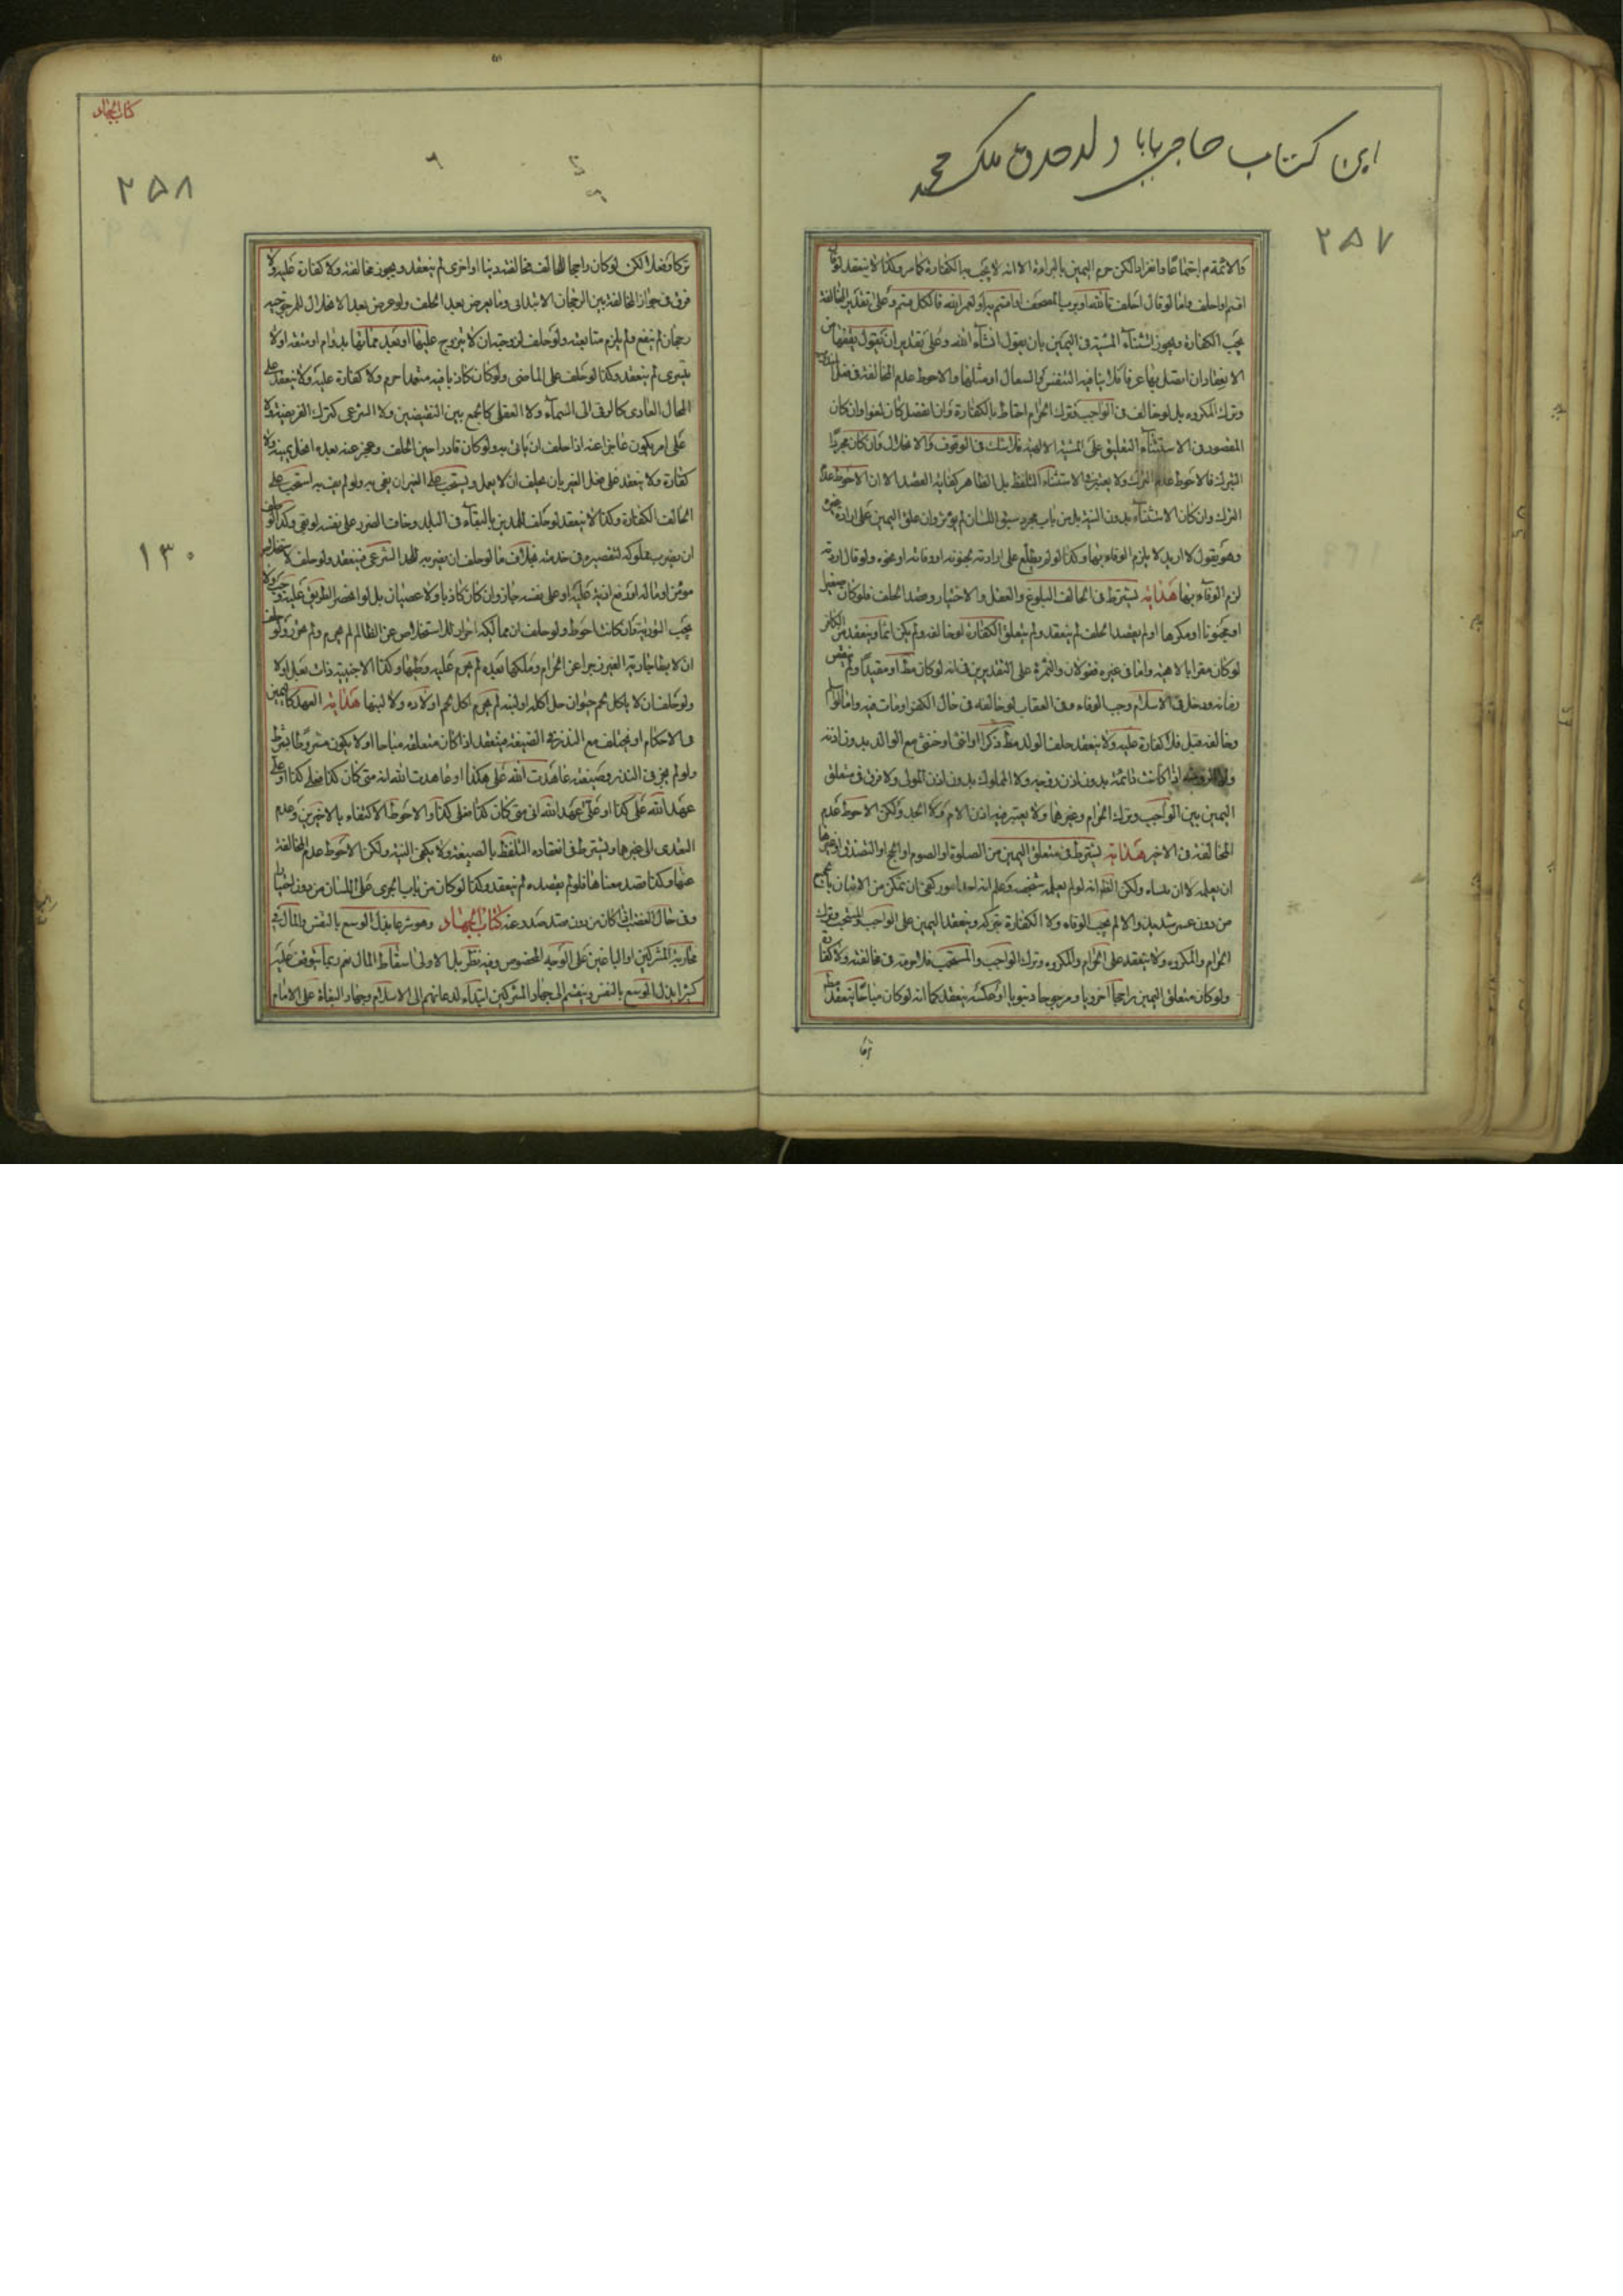 این کتاب حاجی بابا ولد ملک محمد
۲۵۷
والائمة م اجتماعا وانفرادا لكن حرم اليمين بالبرائة الا انه لا يجب به الكفارة كما مر وكذا لا ينعقد لو قال
اقسم او احلف واما لو قال احلف بالله او برب المصحف او اقسم به او لعمر الله فالكل قسم وعلى تقدير المخالفة
يجب الكفارة ويجوز استثناء المشية في اليمين بان يقول انشاء الله وعلى تقدير ان يقول يقفها من
الانعقاد ان اتصل بها عرفا فلا ينافيه التنفس والسعال او مثلهما والاحوط عدم المخالفة في فعل
وترك المكروه بل لو خالف في الواجب وترك الحرام احتاط بالكفارة وان انفصل كان لغوا وان كان
المقصود في الاستثناء التعليق على المشية الالهية فلا شك في الوقوف والانحلال وان كان مجرد
التبرك فالاحوط عدم الترك ولا يعتبر في الاستثناء التلفظ بل الظاهر كفاية القصد الا ان الاحوط عدم
الترك وان كان الاستثناء بدون النية بل من باب مجرد سبق اللسان لم يؤثر وان علق اليمين على ارادة غيره
وهو يقول لا اريد لا يلزم الوفاء بها وكذا لو لم يطلع على ارادته بجنونه او وفاته او نحوه ولو قال اردته
لزم الوفاء بها هداية يشترط في الحالف البلوغ والعقل والاختيار وقصد الحلف فلو كان صغيرا
او مجنونا او مكرها او لم يقصد الحلف لم ينعقد ولم يتعلق الكفارة لو خالفه ولم يكن اثما وينعقد من الكافر
لو كان مقرا بالاهية واما في غيره فقولان والثمرة على التقديرين في انه لو كان مطلقا او مقيدا ولم ينقض
زمانه ودخل في الاسلام وجب الوفاء وفي العقاب لو خالفه في حال الكفر او مات فيه واما لو اسلم
وخالفه قبل فلا كفارة عليه ولا ينعقد حلف الولد مطلقا ذكرا او انثى او خنثى مع الوالد بدون اذنه
ولا الزوجة اذا كانت دائمة بدون اذن زوجه ولا المملوك بدون اذن المولى ولا فرق في متعلق
اليمين بين الواجب وترك الحرام وغيرها ولا يعتبر فيه اذن الام ولا الجد ولكن الاحوط عدم
المخالفة في الاخير هداية يشترط في متعلق اليمين من الصلوة او الصوم او الحج او التصدق او غيرها
ان يعلمه لا ان ينساه ولكن
من دون عسر شديد والا لم يجب الوفاء ولا الكفارة بتركه وينعقد اليمين على الواجب والمستحب وترك
الحرام والمكروه ولا ينعقد على الحرام والمكروه وترك الواجب والمستحب فلا حرمة في مخالفته ولا كفارة
ولو كان متعلق اليمين راجحا اخرويا ومرجوحا دنيويا او عكسه ينعقد كما انه لو كان مباحا ينعقد مطلقا
تركا
کتاب الجهاد
۲۵۸
۱۳۰
تركا وفعلا لكن لو كان راجحا المخالف مخالفته دينا او اخرى لم ينعقد ويجوز مخالفته ولا كفارة عليه ولا
فرق في جواز المخالفة بين الرجحان الابتدائى وما يعرض بعد الحلف ولو عرض بعد الانحلال للمرجوحية
رجحان لم ينفع ولم يلزم متابعته ولو حلف لزوجته ان لا يتزوج عليها او بعد مماتها بدوام او متعة او لا
يتسرى لم ينعقد وكذا لو حلف على الماضى ولو كان كاذبا فيه متعمدا حرم ولا كفارة عليه ولا ينعقد على
المحال العادى كالرقى الى السماء ولا العقلى كالجمع بين النقيضين ولا الشرعى كترك الفريضة ولا
على امر يكون عاجزا عنه اذا حلف ان ياتى به ولو كان قادرا حين الحلف وعجز عنه بعده انحل يمينه ولا
كفارة ولا ينعقد على فعل الغير بان يحلف ان لا يعمل ويستحب على الغير ان يفى به ولو لم يف به استحب على
الحالف الكفارة وكذا لا ينعقد لو حلف المدين بالبقاء في البلد وخاف الضرر على نفسه لو بقى وكذا لو حلف
ان يضرب مملوكه لتقصيره في خدمته بخلاف ما لو حلف ان يضربه للحد الشرعى فينعقد ولو حلف لاستخلاص
مؤمن او ماله او دفع اذية عليه او على نفسه جاز وان كان كاذبا ولا عصيان بل لو انحصر الطريق عليه وجب ولا
يجب التورية وان كانت احوط ولو حلف ان مماليكه احرار لاستخلاص عن الظالم لم يحرم ولم يحرر ولو حلف
ان لا يطا جارية الغير فرارا عن الحرام وملكها بعده لم يحرم عليه وطيها وكذا الاجنبية ذات بعل او لا
ولو حلف ان لا ياكل لحم حيوان حل اكله او لبنه لم يحرم اكل لحم اولاده ولا لبنها هداية العهد كاليمين
في الاحكام او يختلف مع النذر في الصيغة فينعقد اذا كان متعلقه مباحا او لا يكون مشروطا بشرط
ولو لم يجز في النذر وصيغته عاهدت الله على هكذا او عاهدت الله انه متى كان كذا فعلى كذا او على
عهد الله على كذا او على عهد الله انى متى كان كذا فعلى كذا والاحوط الاكتفاء بالاخيرين وعدم
التعدى الى غيرها ويشترط في انعقاده التلفظ بالصيغة ولا يكفى النية ولكن الاحوط عدم المخالفة
عنها وكذا قصد معناها فلو لم يقصده لم ينعقد وكذا لو كان من باب الجرى على اللسان من دون اختيار
وفى حال الغضب اذا كان من دون قصد صدوره عنه كتاب الجهاد وهو شرعا بذل الوسع بالنفس والمال في
محاربة المشركين او الباغين على الوجه المخصوص وفيه نظر بل الاولى اسقاط المال نعم ربما يتوقف عليه
كثيرا بذل الوسع بالنفس وينقسم الى جهاد المشركين ابتداء لدعائهم الى الاسلام وجهاد البغاة على الامام